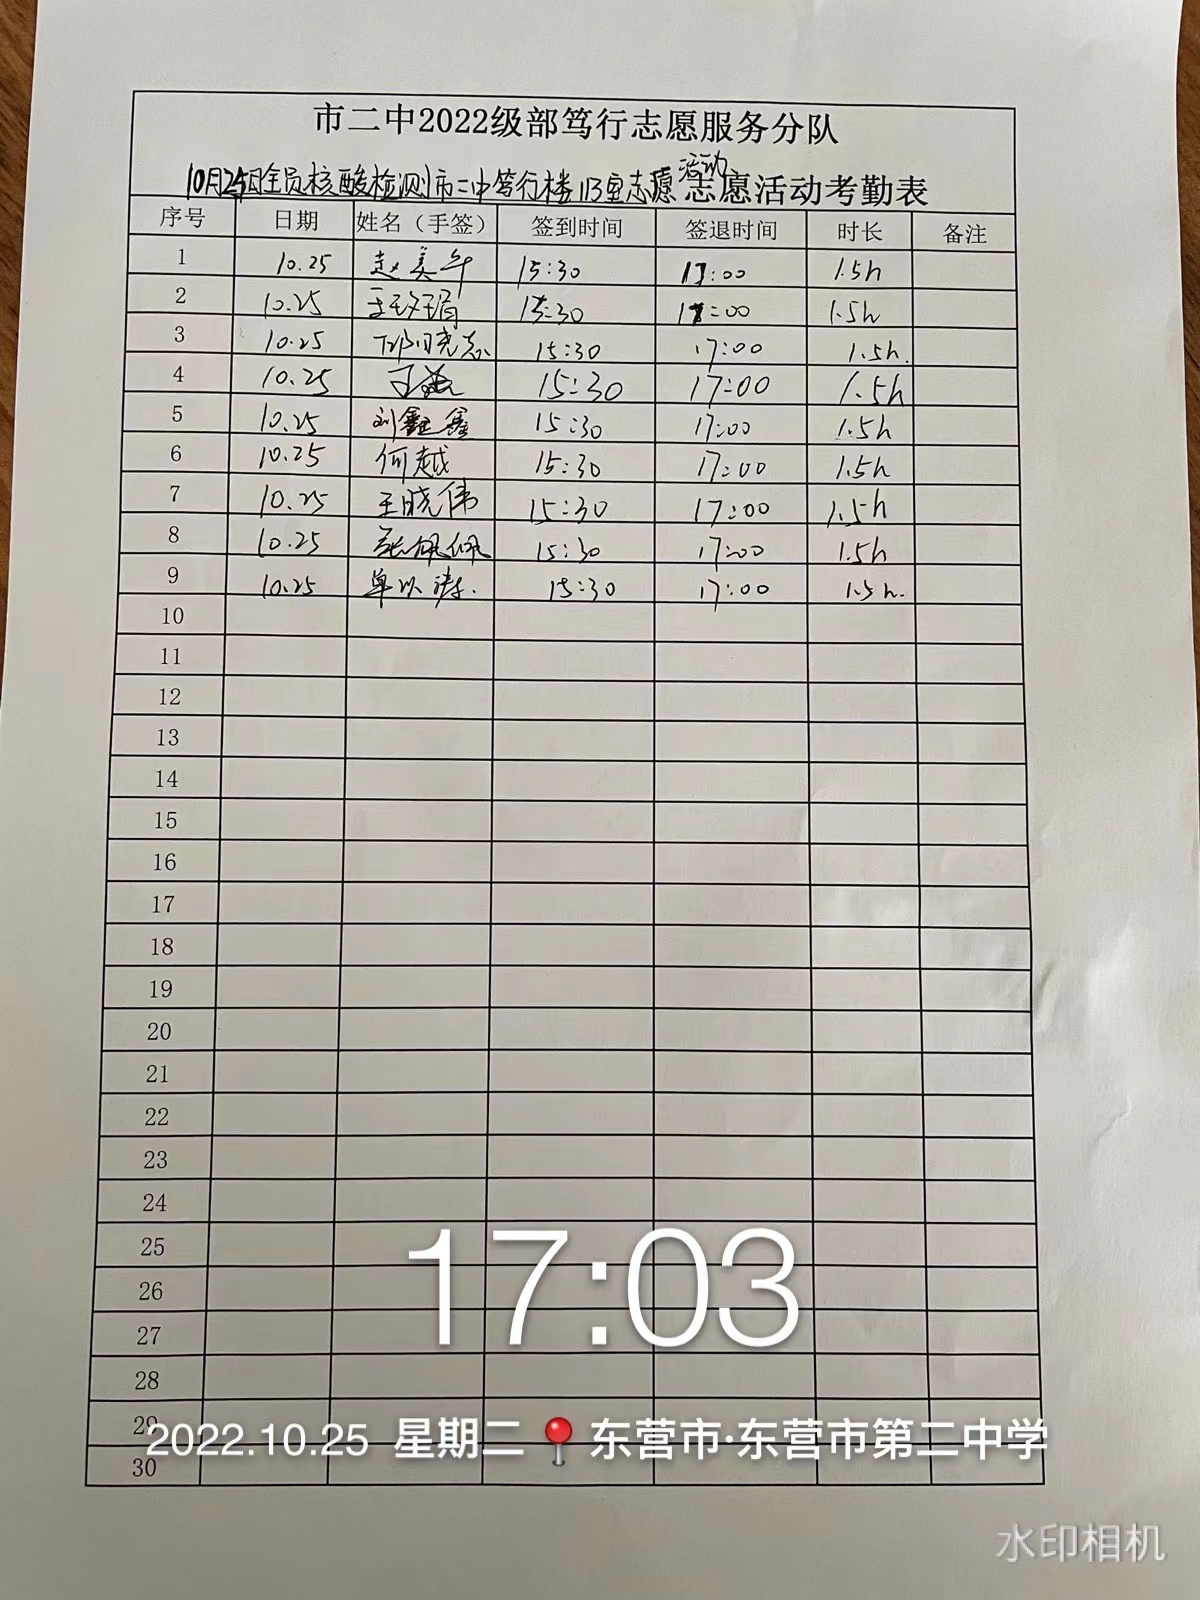 市二中2022级部笃行志愿服务分队
活动
10月25日全员核酸检测市二中笃行楼113室志愿 志愿活动考勤表
序号 日期 姓名（手签） 签到时间 签退时间 时长 备注
1 10.25 赵美午 15:30 17:00 1.5h
2 10.25 15:30 17:00 1.5h
3 10.25 15:30 17:00 1.5h.
4 10.25 15:30 17:00 1.5h
5 10.25 刘鑫鑫 15:30 17:00 1.5h
6 10.25 何越 15:30 17:00 1.5h
7 10.25 王晓伟 15:30 17:00 1.5h
8 10.25 张佩佩 15:30 17:00 1.5h
9 10.25 单以涛. 15:30 17:00 1.5h.
10
11
12
13
14
15
16
17
18
19
20
21
22
23
24
25
26
27
28
29
30
17:03
2022.10.25 星期二 东营市·东营市第二中学
水印相机